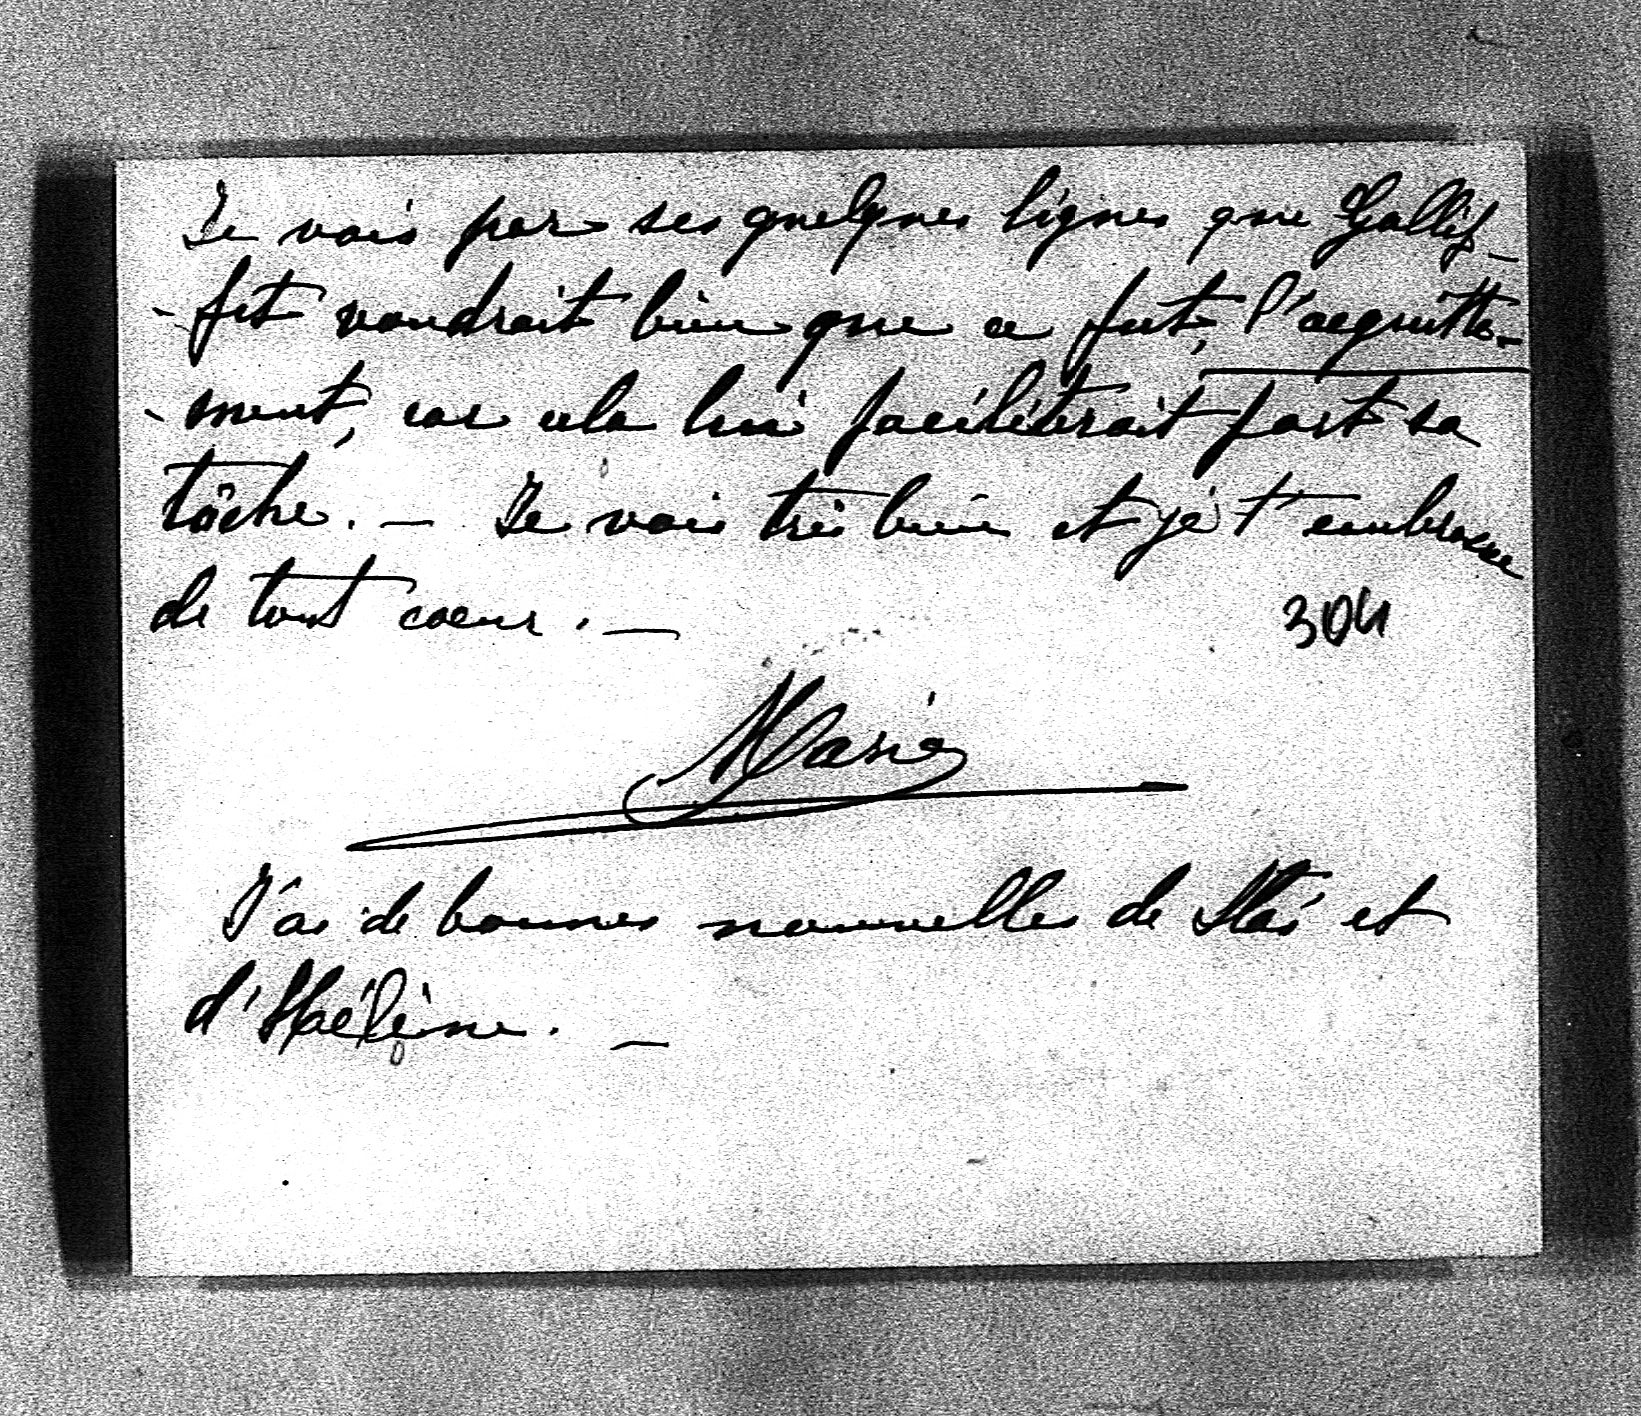 Je vois par ses quelques lignes que Gallif-
-fet voudrait bien que ce fut, l'acquitte-
-ment, car cela lui faciliterait fort sa
tâche. — Je vais très bien et je t'embrasse
de tout coeur. —
304
Marie
J'ai de bonnes nouvelles de Stas et
d'Hélène. —